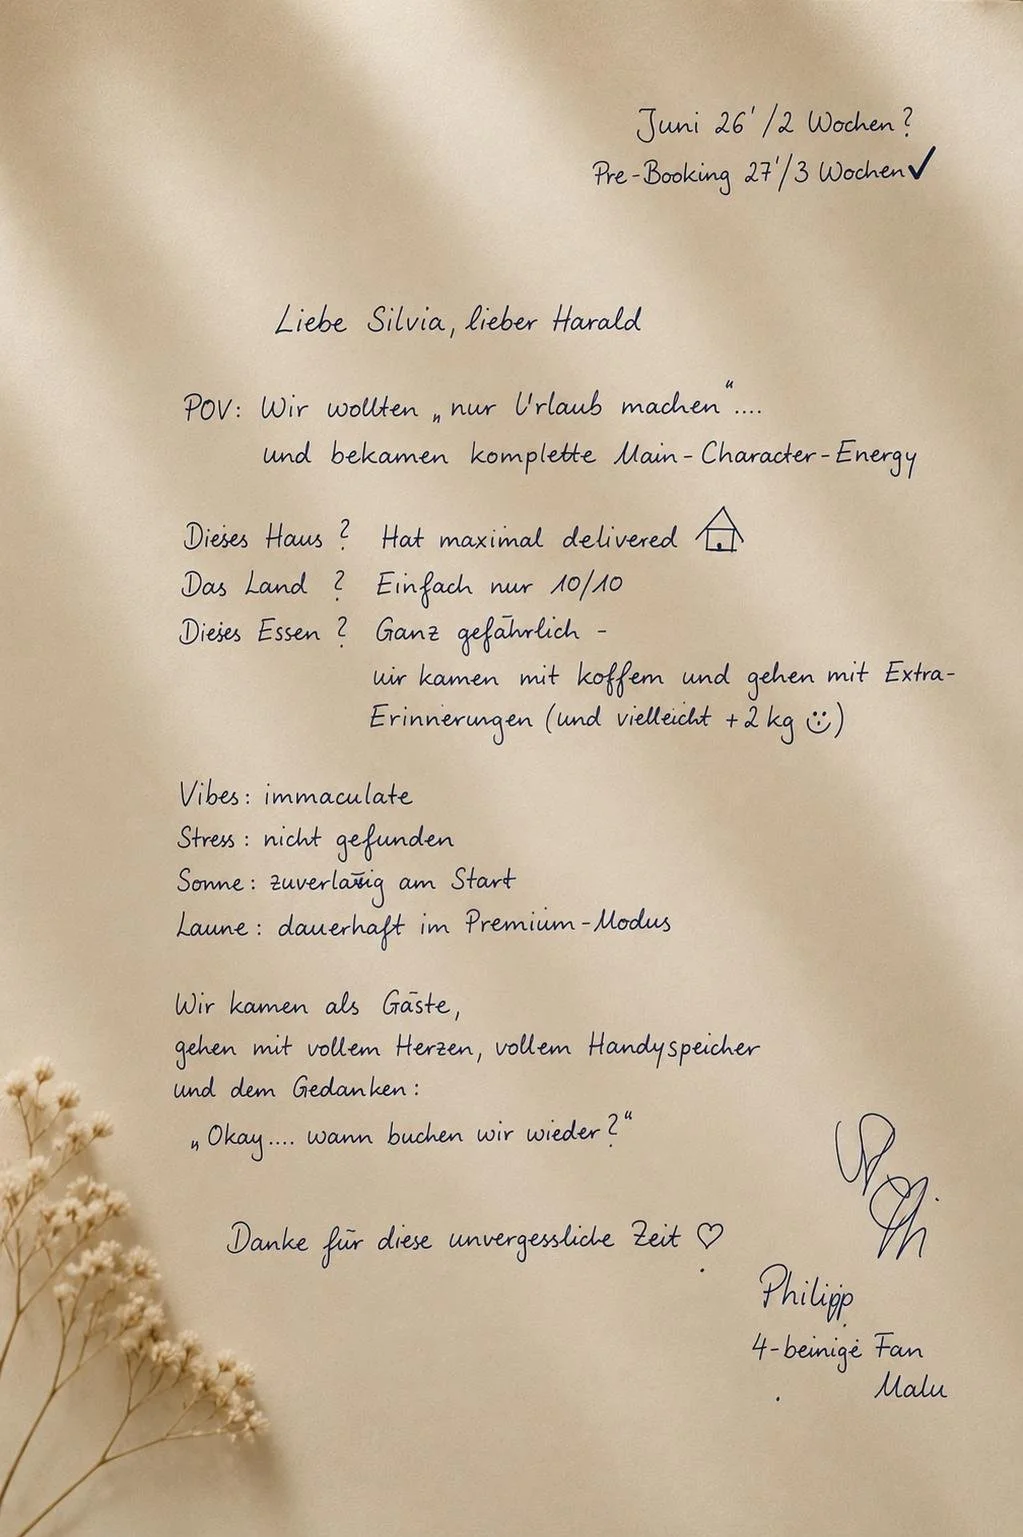 Juni 26' / 2 Wochen?
Pre-Booking 27' / 3 Wochen ✓
Liebe Silvia, lieber Harald
POV: Wir wollten „nur Urlaub machen“....
und bekamen komplette Main-Character-Energy
Dieses Haus? Hat maximal delivered
Das Land? Einfach nur 10/10
Dieses Essen? Ganz gefährlich -
wir kamen mit koffern und gehen mit Extra-
Erinnerungen (und vielleicht +2 kg ☺)
Vibes: immaculate
Stress: nicht gefunden
Sonne: zuverlässig am Start
Laune: dauerhaft im Premium-Modus
Wir kamen als Gäste,
gehen mit vollem Herzen, vollem Handyspeicher
und dem Gedanken:
„Okay.... wann buchen wir wieder?“
Danke für diese unvergessliche Zeit ♡
Philipp
4-beinige Fan
Malu